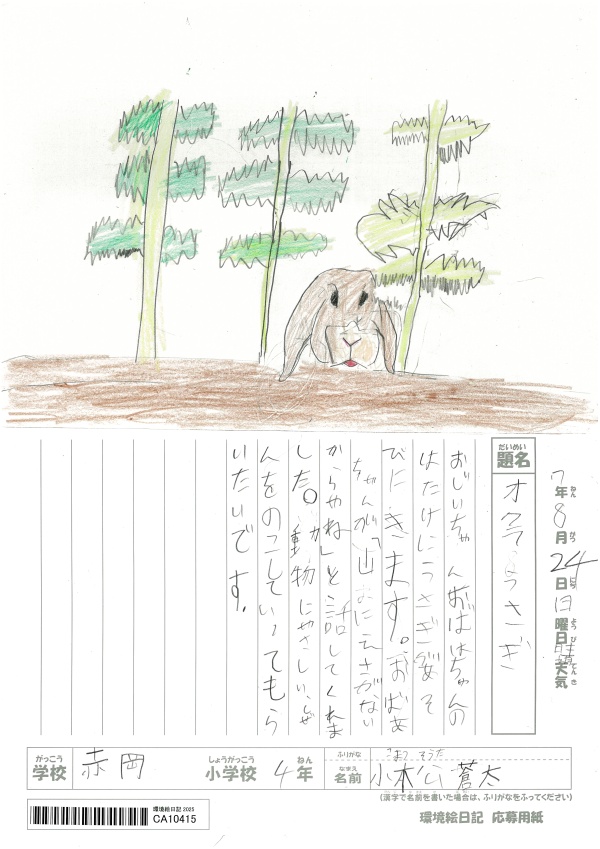 7年8月24日日曜日晴天気
題名 オクラとうさぎ
おじいちゃんおばあちゃんの
はたけにうさぎがあそ
びにきます。おばあ
ちゃんが「山にえさがない
からやね」と話してくれま
した。動物にやさしいしぜ
んをのこしていってもら
いたいです。
がっこう
学校 赤岡 しょうがっこう 小学校 4年 ねん
ふりがな こまつ そうた
なまえ
名前 小松 蒼太
(漢字で名前を書いた場合は、ふりがなをふってください)
環境絵日記 2025
CA10415
環境絵日記 応募用紙